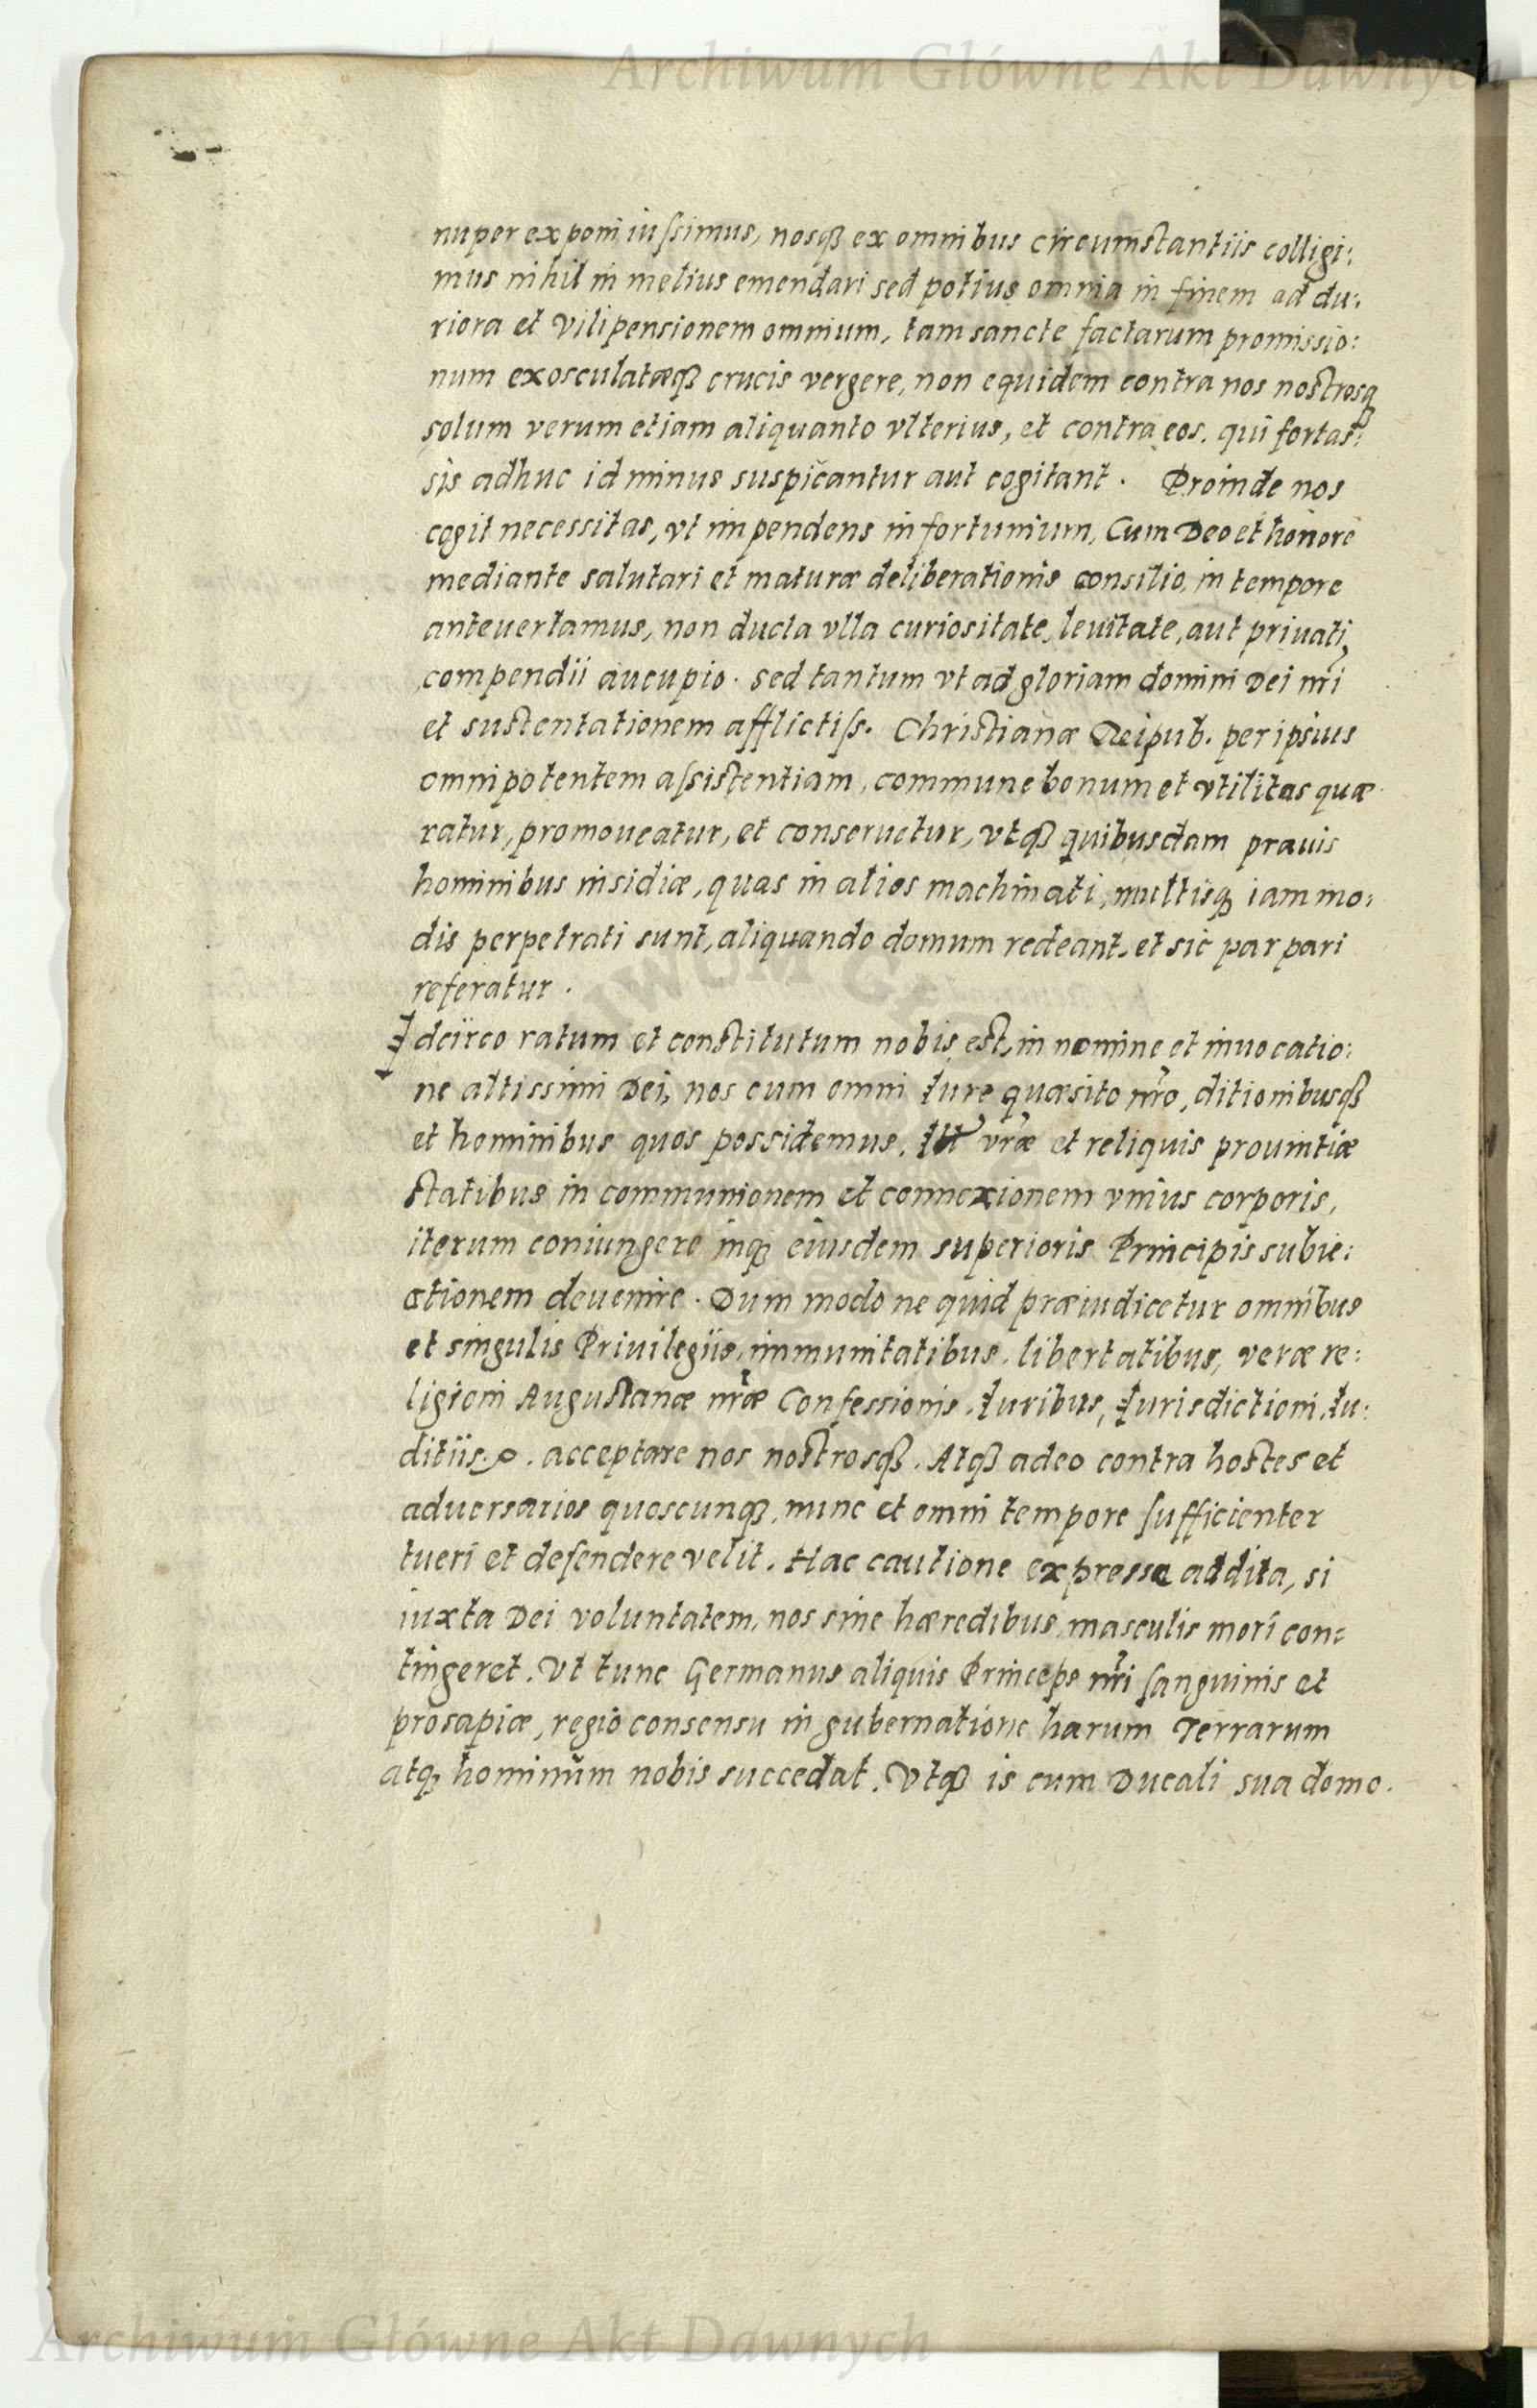 Archiwum Główne Akt Dawnych
nuper exponi iussimus, nosq₃ ex omnibus circumstantiis colligi:
mus nihil in melius emendari sed potius omnia in finem ad du:
riora et vilipensionem omnium, tam sancte factarum promissio:
num exosculatæq₃ crucis vergere, non equidem contra nos nostrosq₃
solum verum etiam aliquanto vlterius, et contra eos. qui fortas:
sis adhuc id minus suspicantur aut cogitant. Proinde nos
cogit necessitas, vt impendens infortunium, Cum Deo et honore
mediante salutari et maturæ deliberationis consilio, in tempore
anteuertamus, non ducta vlla curiositate, leuitate, aut priuati
compendii aucupio. sed tantum vt ad gloriam domini Dei nri
et sustentationem afflictiss. Christianæ Reipub. per ipsius
omnipotentem assistentiam, commune bonum et vtilitas quæ
ratur, promoueatur, et conseruetur, vtq₃ quibusdam prauis
hominibus insidiæ, quas in alios machinati, multisq₃ iam mo:
dis perpetrati sunt, aliquando domum redeant, et sic par pari
referatur.
Idcirco ratum et constitutum nobis est, in nomine et inuocatio:
ne altissimi Dei, nos cum omni Iure quæsito nro, ditionibusq₃
et hominibus quos possidemus, vræ et reliquis prouintiæ
statibus in communionem et connexionem vnius corporis,
iterum coniungere inq₃ eiusdem superioris Principis subie:
ctionem deuenire. Dum modo ne quid præiudicetur omnibus
et singulis Priuilegiis, immunitatibus, libertatibus, veræ re:
ligioni Augustanæ nræ Confessionis, Iuribus, Iurisdictioni, Iu:
ditiis. acceptare nos nostrosq₃. Atq₃ adeo contra hostes et
aduersarios quoscunq₃, nunc et omni tempore sufficienter
tueri et defendere velit. Hac cautione expresse addita, si
iuxta Dei voluntatem, nos sine hæredibus masculis mori con:
tingeret. Vt tunc Germanus aliquis Princeps nri sanguinis et
prosapiæ, regio consensu in gubernatione harum Terrarum
atq₃ hominum nobis succedat. Vtq₃ is cum Ducali sua domo.
Archiwum Główne Akt Dawnych